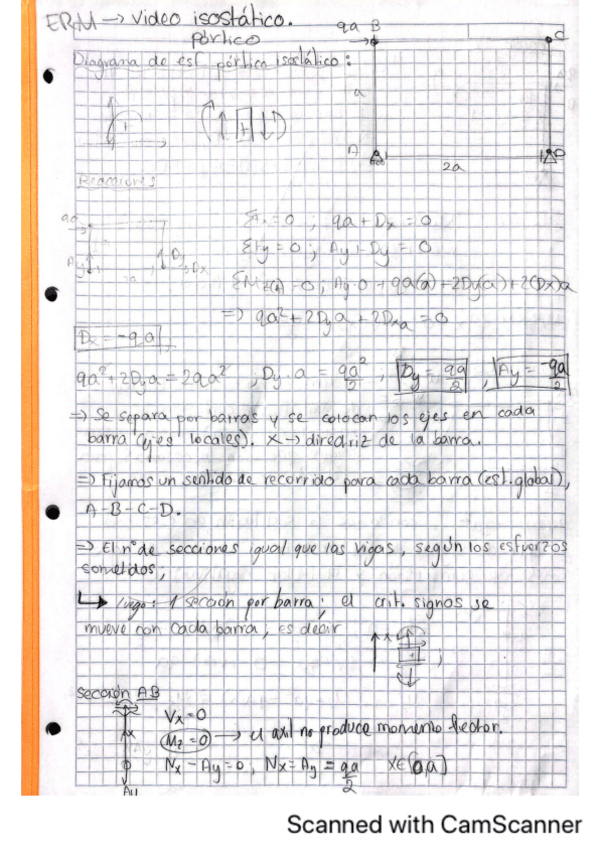 ERM → Video isostático.
pórtico
qa B
C
Diagrama de esf pórtico isostático:
a
A
D
2a
Reacciones
qa
Ay
2a
Dy
Dx
ΣFx=0 ; qa + Dx = 0
ΣFy=0 ; Ay + Dy = 0
ΣMz(A)=0 ; Ay·0 + qa(a) + 2Dy(a) + 2(Dx)a
=> qa² + 2Dya + 2Dxa = 0
Dx = -qa ,
qa² + 2Dya = 2qa² ; Dy a = qa²/2 ; Dy = qa/2 , Ay = -qa/2
=> Se separa por barras y se colocan los ejes en cada
barra (ejes locales). x → directriz de la barra.
=> Fijamos un sentido de recorrido para cada barra (est. global),
A-B-C-D.
=> El nº de secciones igual que las vigas, según los esfuerzos
sometidos;
↳ luego: 1 sección por barra; el crit. signos se
mueve con cada barra, es decir
x
+
;
Sección AB
Vx=0
Mz=0 → el axil no produce momento flector.
Nx - Ay = 0 , Nx = Ay = qa/2 x∈[0,a]
x
Ay
Scanned with CamScanner